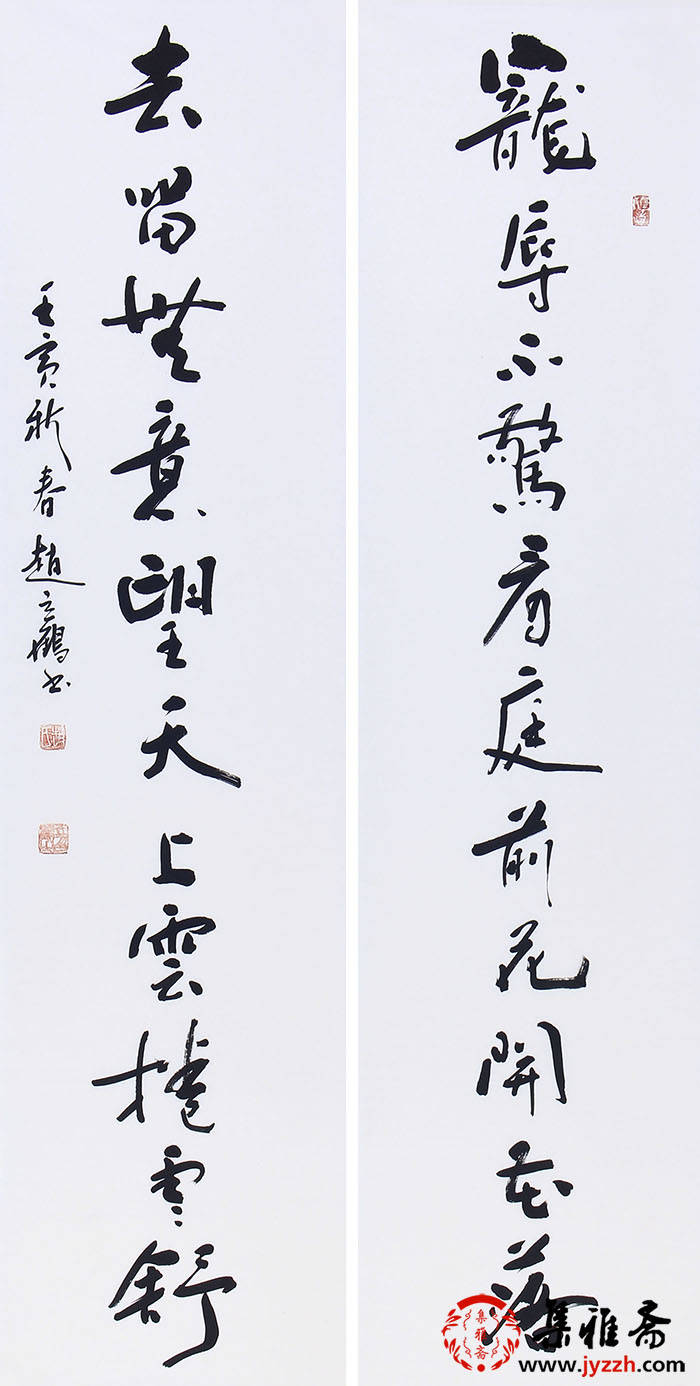 寵辱不驚看庭前花開花落
去留無意望天上雲捲雲舒
壬寅新春趙之鶴书
集雅斋
集雅斋
www.jyzzh.com